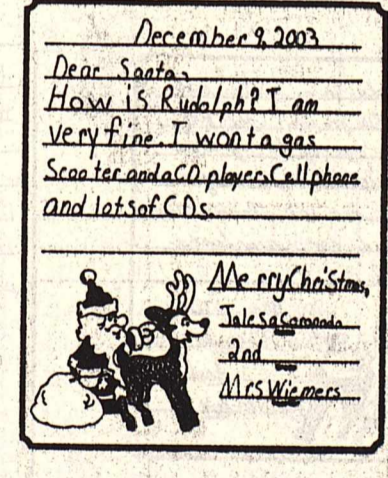 December 9, 2003
Dear Santa,
How is Rudolph? I am
very fine. I wont a gas
Scooter and a CD player, Cell phone
and lots of CDs.
Merry Christmas,
Jalesa
2nd
Mrs Wiemers